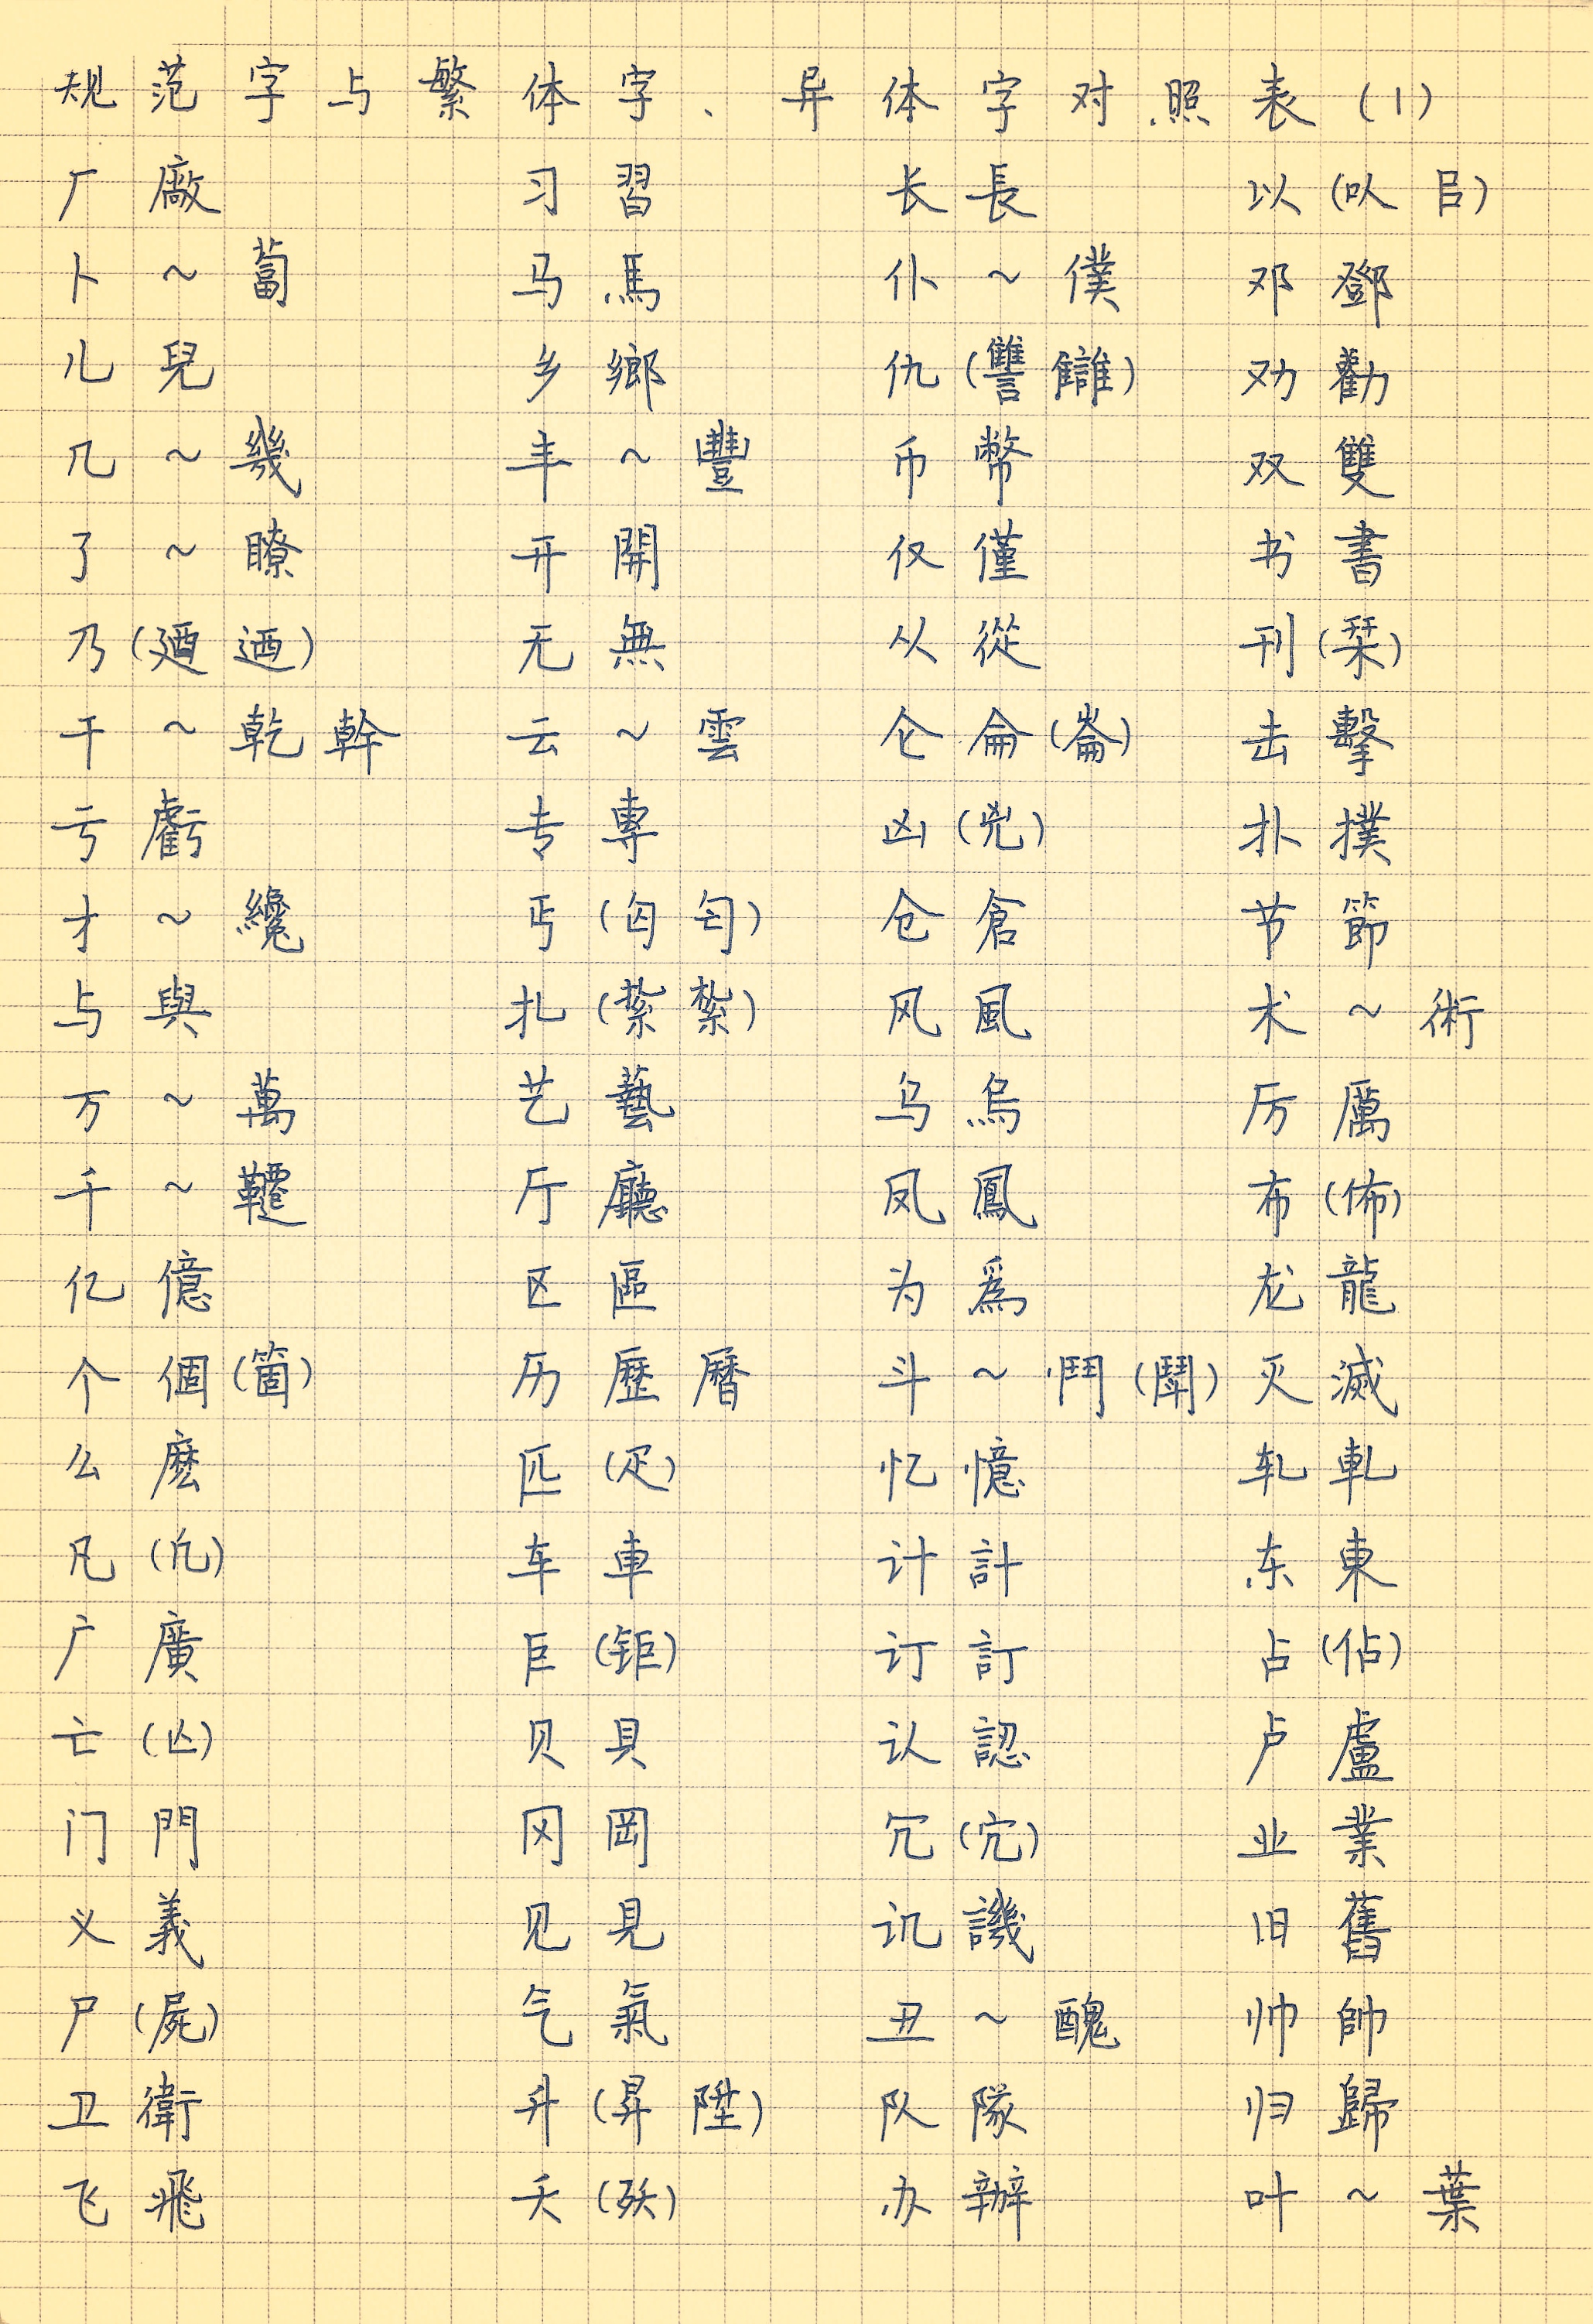 规范字与繁体字、异体字对照表(1)
厂 廠 习 習 长 長 以 (㕥 㠯)
卜 ~ 蔔 马 馬 仆 ~ 僕 邓 鄧
儿 兒 乡 鄉 仇 (讐 讎) 劝 勸
几 ~ 幾 丰 ~ 豐 币 幣 双 雙
了 ~ 瞭 开 開 仅 僅 书 書
乃 (廼 迺) 无 無 从 從 刊 (栞)
干 ~ 乾 幹 云 ~ 雲 仑 侖 (崙) 击 擊
亏 虧 专 專 凶 (兇) 扑 撲
才 ~ 纔 丐 (匄 匃) 仓 倉 节 節
与 與 扎 (紮 紥) 风 風 术 ~ 術
万 ~ 萬 艺 藝 乌 烏 厉 厲
千 ~ 韆 厅 廳 凤 鳳 布 (佈)
亿 億 区 區 为 爲 龙 龍
个 個 (箇) 历 歷 曆 斗 ~ 鬥 (鬭) 灭 滅
么 麽 匹 (疋) 忆 憶 轧 軋
凡 (凣) 车 車 计 計 东 東
广 廣 巨 (钜) 订 訂 占 (佔)
亡 (亾) 贝 貝 认 認 卢 盧
门 門 冈 岡 冗 (宂) 业 業
义 義 见 見 讥 譏 旧 舊
尸 (屍) 气 氣 丑 ~ 醜 帅 帥
卫 衛 升 (昇 陞) 队 隊 归 歸
飞 飛 夭 (殀) 办 辦 叶 ~ 葉